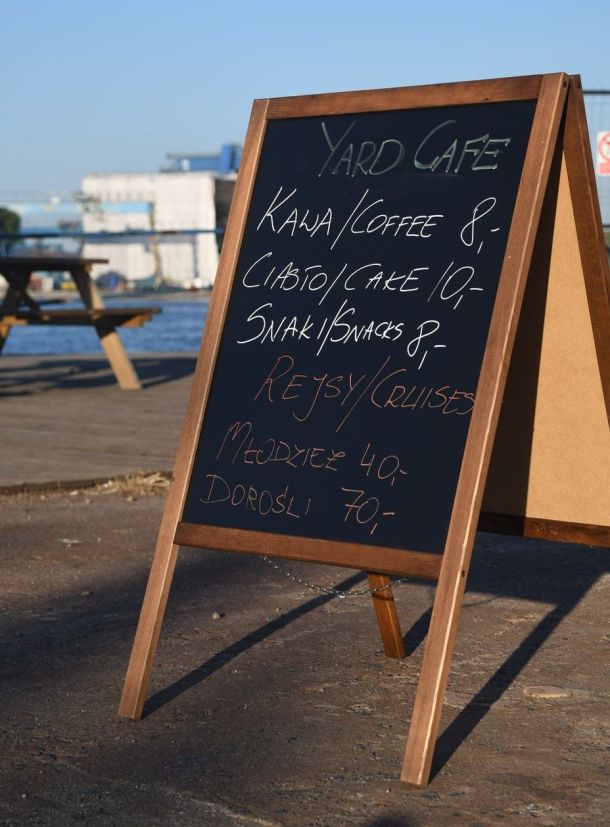 YARD CAFE
KAWA/COFFEE 8,-
CIASTO/CAKE 10,-
SNAKI/SNACKS 8,-
REJSY/CRUISES
MŁODZIEŻ 40,-
DOROŚLI 70,-